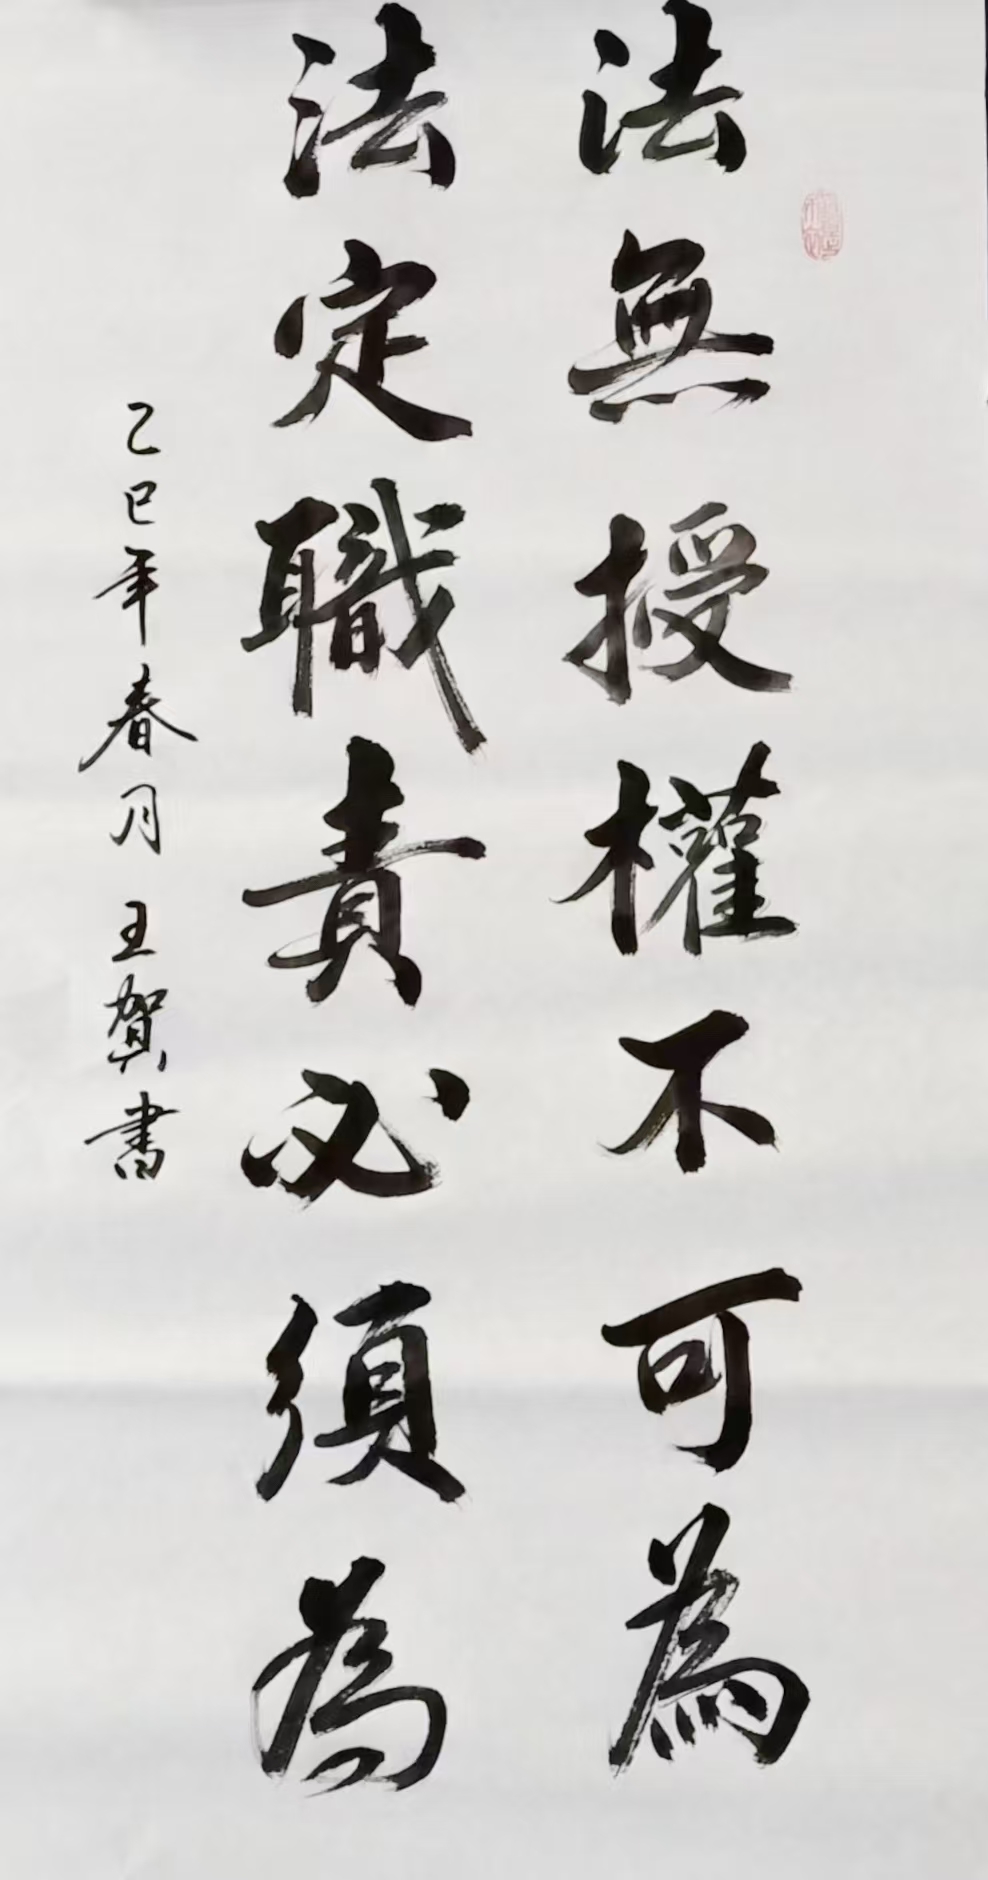 法無授權不可為
法定職責必須為
乙巳年春月王賀書